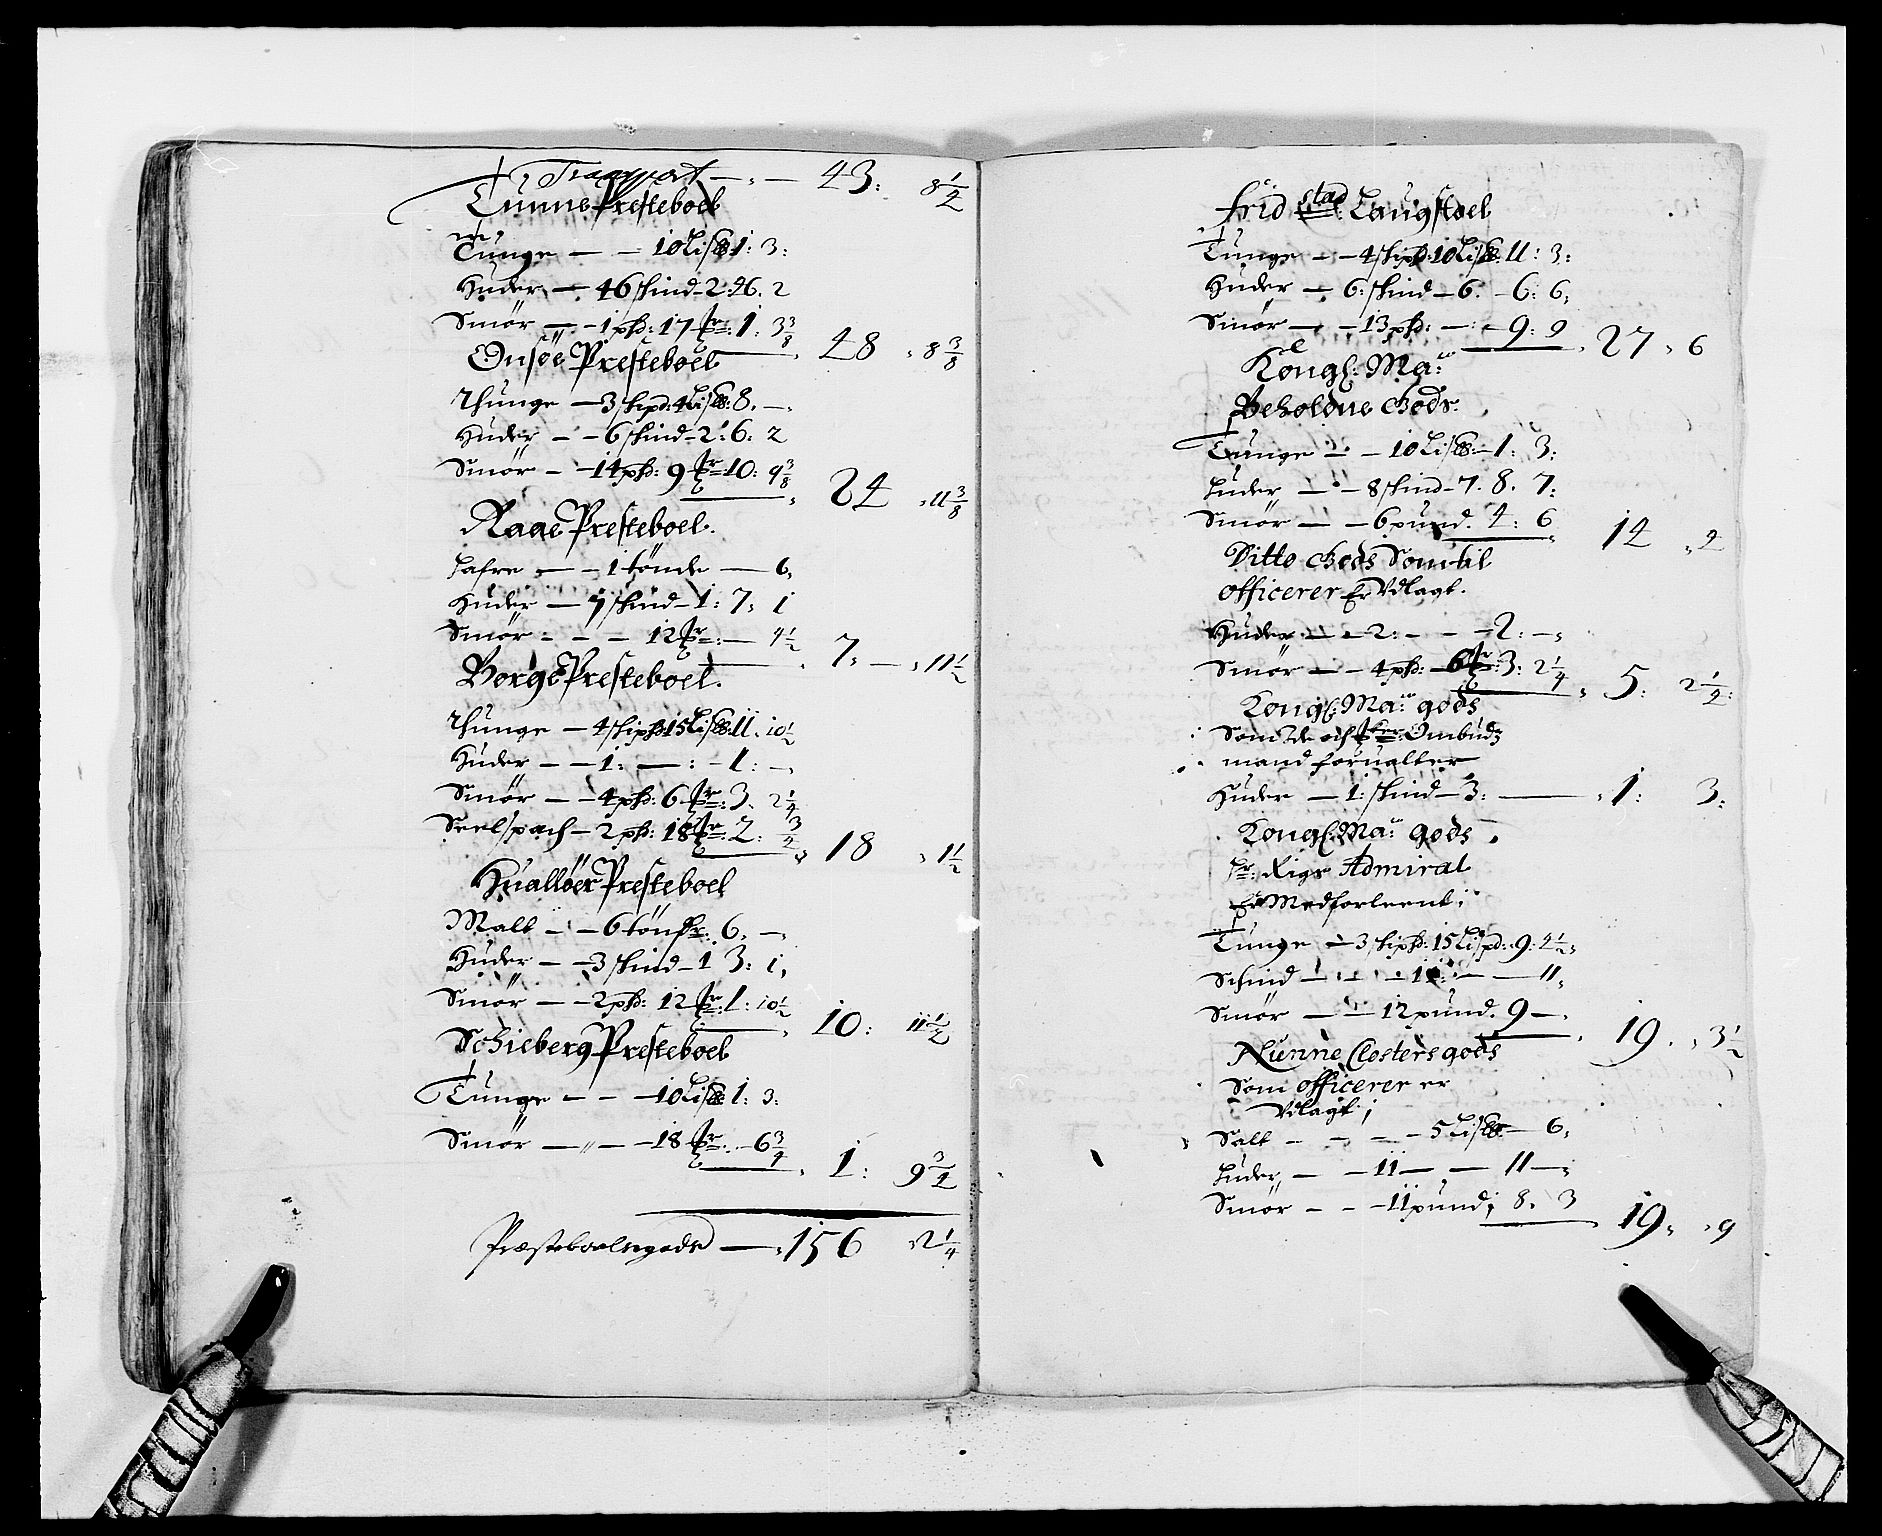 Transport — 43: 8½
Tunne Presteboel
Tunge — — 10 Lis℔ 1: 3:
Huder — 46 skind — 2: 46. 2
Smör — — 1 phd: 17 1: 3⅜
48 " 8⅜
Onsöe Presteboel
Thunge — 3 skipd: 4 Lis℔: 8. —
Huder — — 6 skind — 2: 6: 2
Smör — — 14 phd: 9 10: 9⅜
24 " 11⅜
Raae Presteboel.
Hafre — — 1 tönde — 6,
Huder — 7 skind — 1: 7: 1
Smör — — — 12 — 4½
7: — " 11½
Borge Presteboel.
Thunge — 4 skiphd 15 Lis℔ 11. 10½
Huder — — 1: — : — 1: —
Smör — — 4 phd: 6 3. 2¼
Seelspach — 2 phd: 18 2: ¾
18 " 1½
Hualløer Presteboel
Malt — — 6 tönder: 6. —
Huder — — 3 skind — 1 3: 1,
Smör — — 2 phd: 12 1: 10½
10: 11½
Schieberg Presteboel
Tunge — — — 10 Lis℔ 1: 3:
Smör — " — — 18 — 6¾
1: 9¾
Præsteboelsgods — 156 " 2¼
Fridstad Laugstoel
Tunge — — 4 skiphd: 10 Lis℔: 11: 3:
Huder — 6: skind — 6. — 6: 6,
Smör — — 13 phd: — : — 9: 9
27 " 6
Kongl: Ma:
Beholdne Gods.
Tunge — — 10 Lis℔: — 1: 3:
Huder — — 8 skind — 7. 8. 7:
Smör — — 6 pund. 4: 6
14 " 2
Ditto Gods Som til
officerer Er Vdlagt.
Huder — — 2: — — — 2: —
Smör — — 4 phd: — 6 3: 2¼
5: 2¼:
Kongl: Ma: gods
Som Ombudz
mand forualter
Huder — 1: skind — 3: — 1: 3:
Kongl: Ma: gods
hr: Rigs Admiral
Er Medforleent;
Tunge — 3 skiphd: 15 Lispd: 9: 4½,
Schind — — — 11: — — 11,
Smör — — 12 pund. 9 —
19. " 3½
Nunne Closters gods
Som officerer er
Vdlagt;
Salt — — — — 5 Lis℔ — 6,
Huder — — 11 — — 11 —
Smör — — — 11 pund; 8. 3
19, " 9